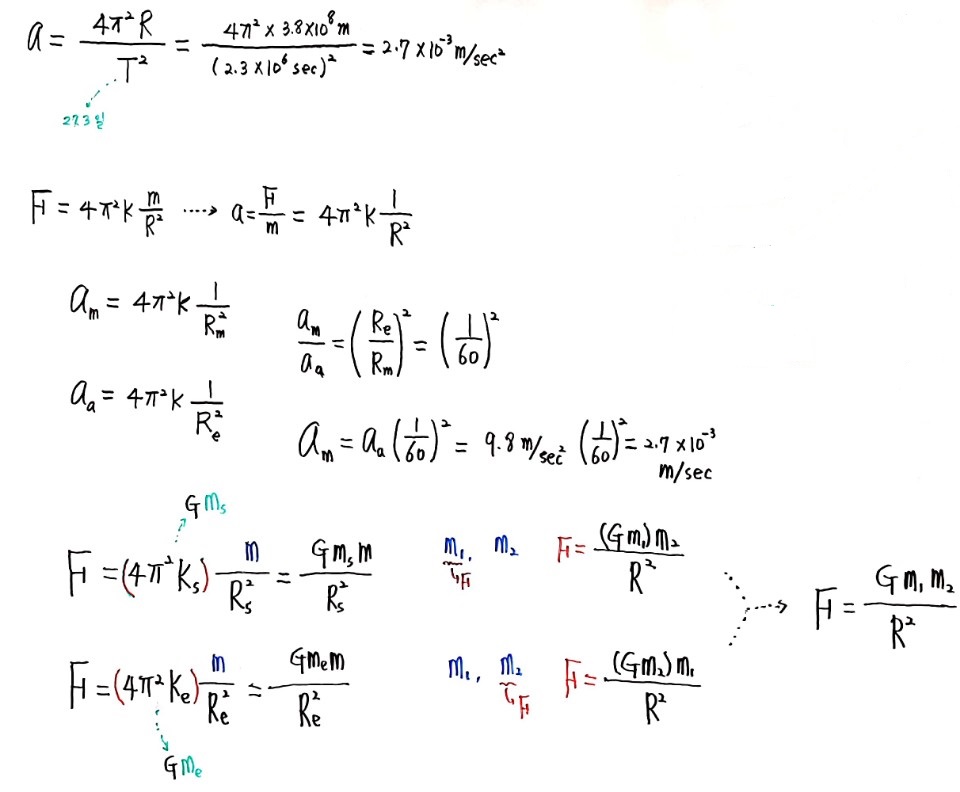 a = 4π²R / T² = 4π² × 3.8×10⁸ m / (2.3×10⁶ sec)² = 2.7×10⁻³ m/sec²
27.3일
F = 4π²K m/R² ····> a = F/m = 4π²K 1/R²
aₘ = 4π²K 1/Rₘ²
aₘ/aₐ = (Rₑ/Rₘ)² = (1/60)²
aₐ = 4π²K 1/Rₑ²
aₘ = aₐ(1/60)² = 9.8 m/sec² (1/60)² = 2.7×10⁻³
m/sec
Gmₛ
F = (4π²Kₛ) m/Rₛ² = Gmₛm/Rₛ²
m₁, m₂
F
F = (Gm₁)m₂/R²
F = Gm₁m₂/R²
F = (4π²Kₑ) m/Rₑ² = Gmₑm/Rₑ²
m₁, m₂
F
F = (Gm₂)m₁/R²
Gmₑ